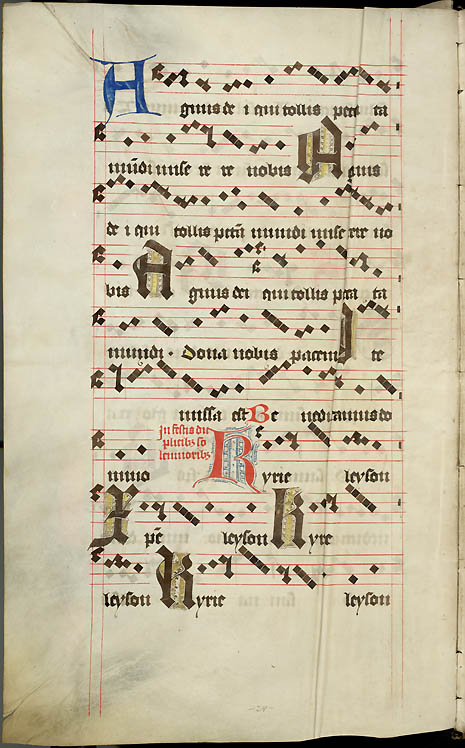 Agnus de i qui tollis pcca ta
mūdi mise re re nobis Agnus
de i qui tollis pctā mundi mise rere no
bis Agnus dei qui tollis pcca ta
mundi. dona nobis pacem I te
missa est Be nedicamus do
In festis du
plicibꝫ so
lennioribꝫ
mino Kyrie leyson
Xpē leyson Kyre
leyson Kyrie leyson